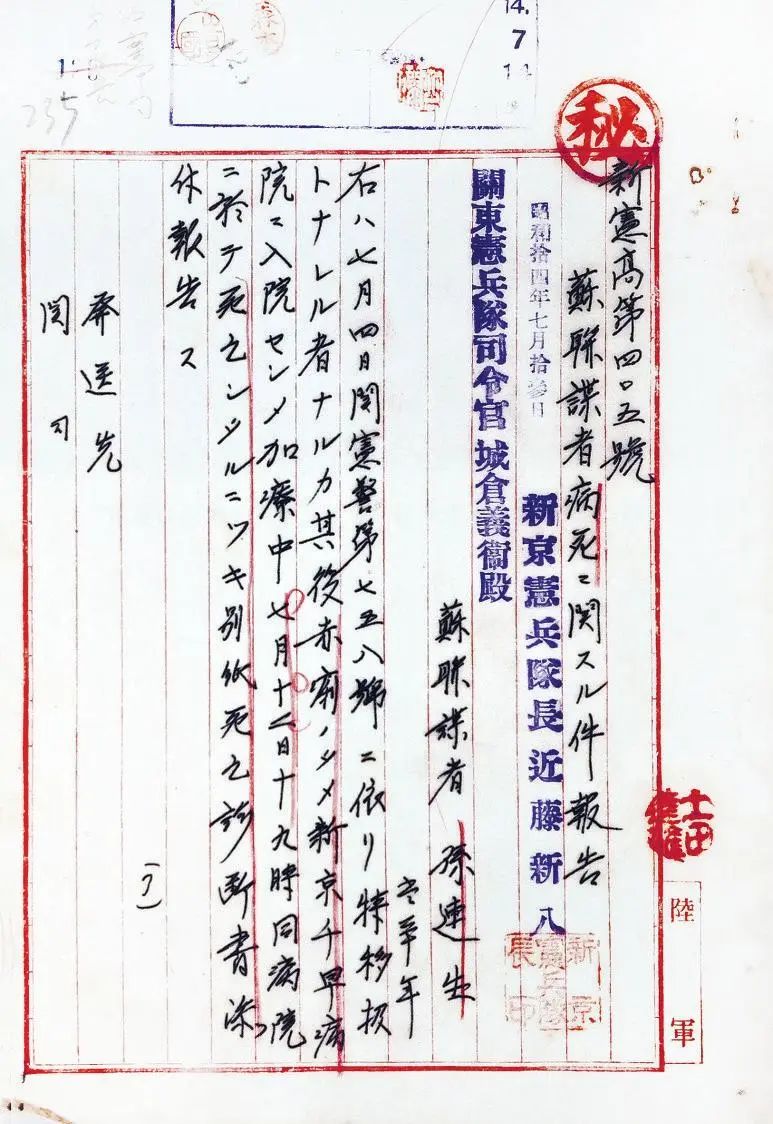 14.
7
14
235
秘
新憲高第四〇五號
蘇聯諜者病死ニ関スル件報告
昭和拾四年七月拾參日
新京憲兵隊長近藤新八
新京憲兵隊長印
關東憲兵隊司令官城倉義衞殿
蘇聯諜者 孫連生
年
右ハ七月四日関憲警第七五八號ニ依リ特移扱
トナレル者ナルカ其後赤痢ノタメ新京千早病
院ニ入院セシメ加療中七月十二日十九時同病院
ニ於テ死亡シタルニツキ別紙死亡診断書添
付報告ス
発送先
関司
(了)
陸軍